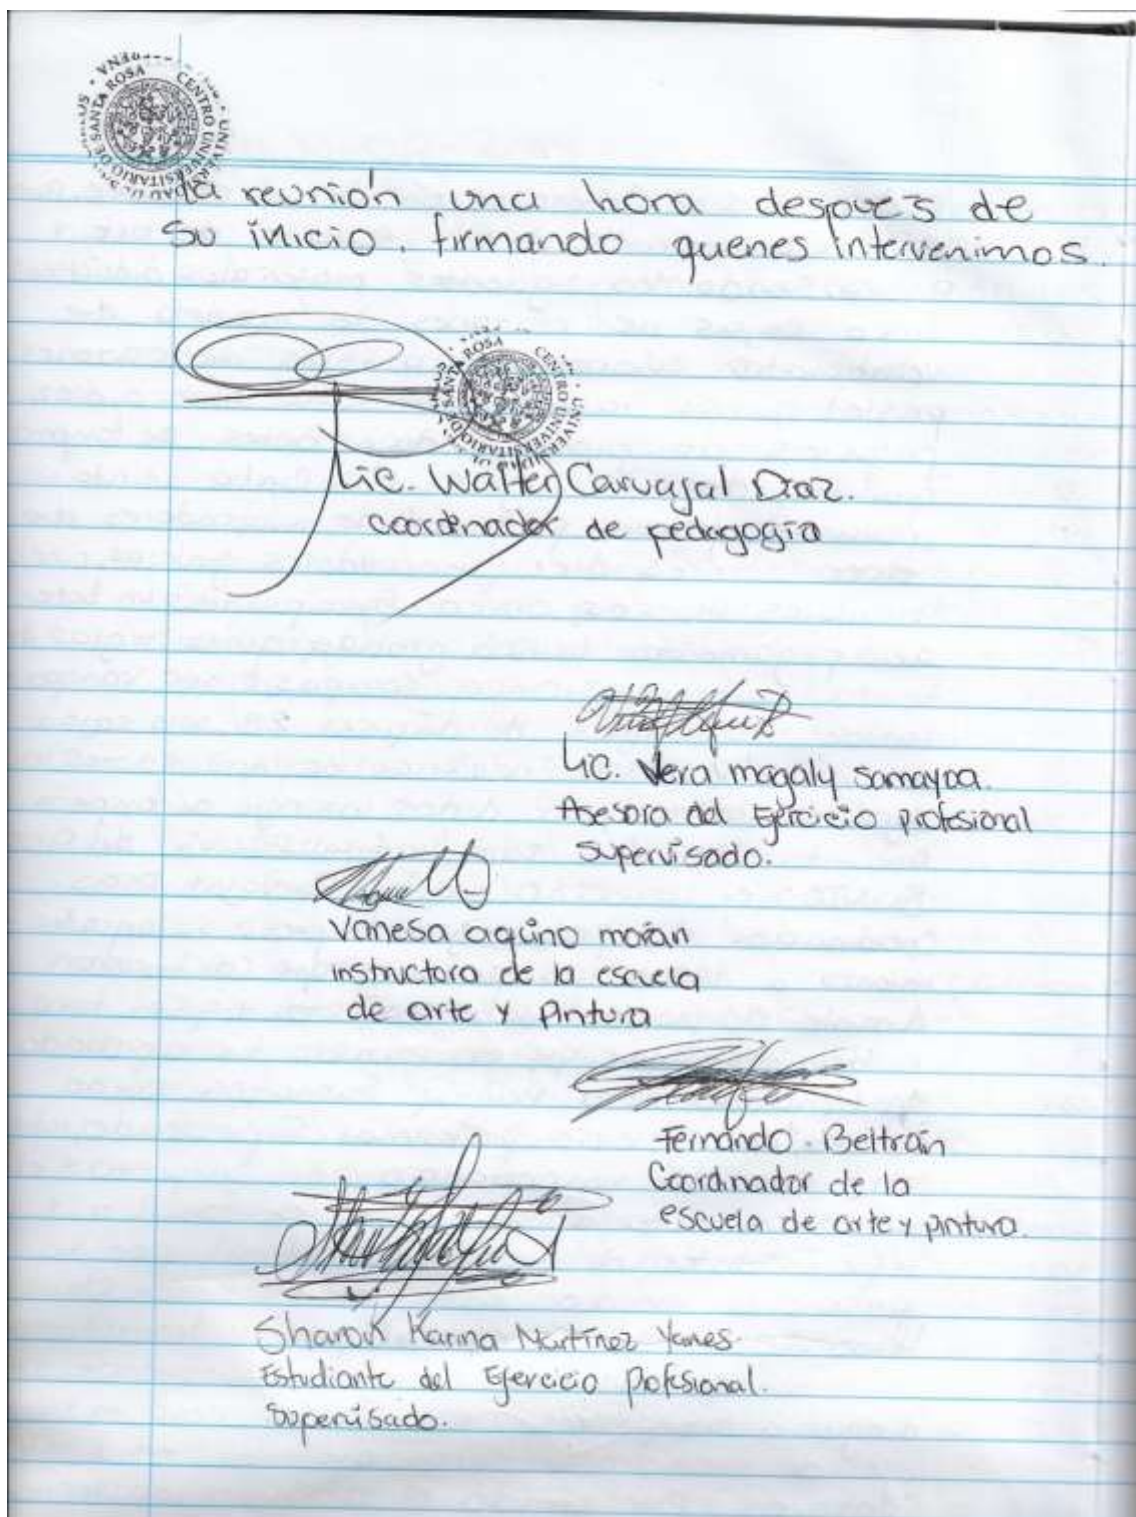 SANTA ROSA CENTRO UNIVERSITARIO DE
la reunión una hora después de
su inicio. firmando quenes intervenimos.
SANTA ROSA CENTRO UNIVERSITARIO DE
Lic. Walter Carvajal Diaz.
coordinador de pedagogía
Lic. Vera magaly samayoa.
Asesora del Ejercicio profesional
supervisado.
Vanesa aquino moran
instructora de la escuela
de arte y pintura
Fernando. Beltrán
Coordinador de la
escuela de arte y pintura.
Sharon Karina Martínez Yanes.
Estudiante del Ejercicio profesional.
Supervisado.